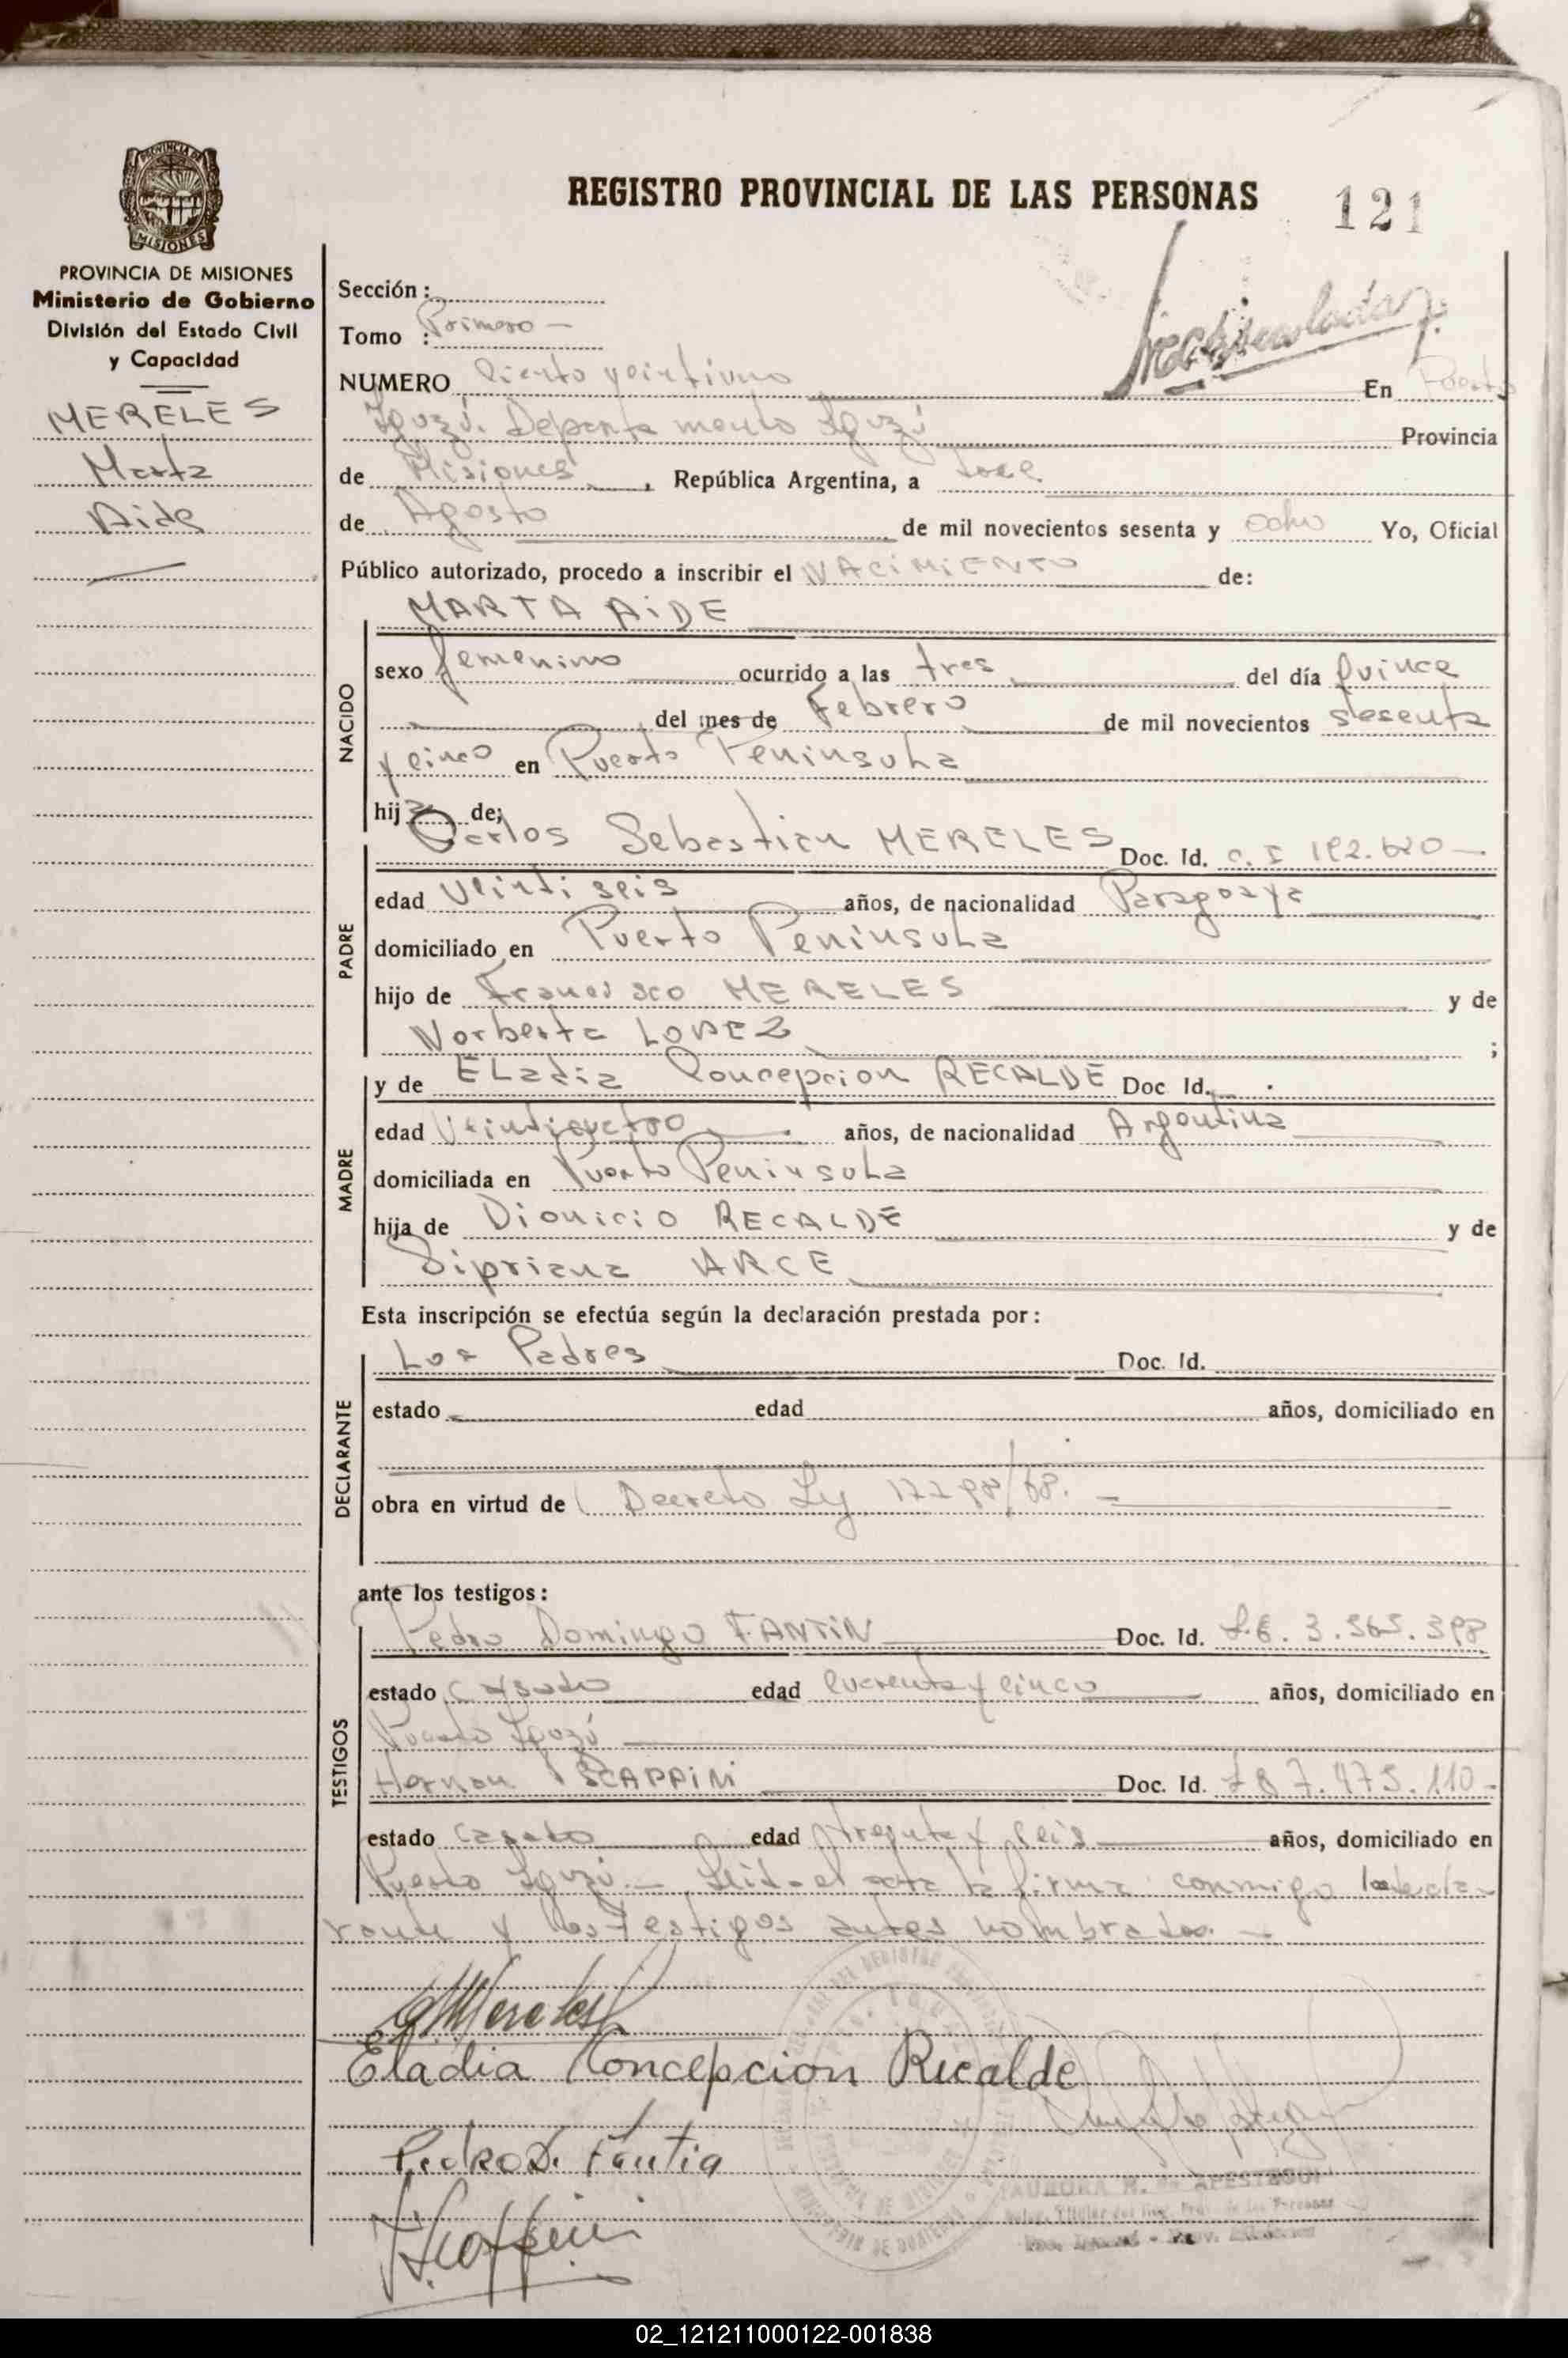 REGISTRO PROVINCIAL DE LAS PERSONAS
121
PROVINCIA DE MISIONES
MISIONES
PROVINCIA DE MISIONES
Ministerio de Gobierno
División del Estado Civil
y Capacidad
MERELES
Marta
Aide
Sección :
Tomo : Primero
NUMERO Ciento veintiuno En Puerto
Iguazú. Departamento Iguazú Provincia
de Misiones, República Argentina, a doce
de Agosto de mil novecientos sesenta y ocho Yo, Oficial
Público autorizado, procedo a inscribir el NACIMIENTO de:
MARTA AIDE
NACIDO
sexo femenino ocurrido a las tres del día Quince
del mes de Febrero de mil novecientos sesenta
y cinco en Puerto Peninsula
hija de;
PADRE
Carlos Sebastian MERELES Doc. Id. C. I 192.620
edad Veintiseis años, de nacionalidad Paraguaya
domiciliado en Puerto Peninsula
hijo de Francisco MERELES y de
Norberta LOPEZ ;
MADRE
y de ELadia Concepcion RECALDE Doc Id.
edad Veinticuatro años, de nacionalidad Argentina
domiciliada en Puerto Peninsula
hija de Dionicio RECALDE y de
Sipriana ARCE
Esta inscripción se efectúa según la declaración prestada por :
DECLARANTE
Los Padres Doc. Id.
estado edad años, domiciliado en
obra en virtud de Decreto Ley 17798/68.
ante los testigos :
TESTIGOS
Pedro Domingo FANTIN Doc. Id. L.E. 3.565.398
estado Casado edad Cuarenta y cinco años, domiciliado en
Puerto Iguazú
Hernan SCAPPINI Doc. Id. 7.475.110
estado casado edad treinta y seis años, domiciliado en
Puerto Iguazú. Leida el acta la firma conmigo la decla-
rante y los testigos antes nombrados.
Mereles
Eladia Concepcion Recalde
Pedro D. Fantin
H. Scappini
AURORA M. de APESTEGUI
02_121211000122-001838